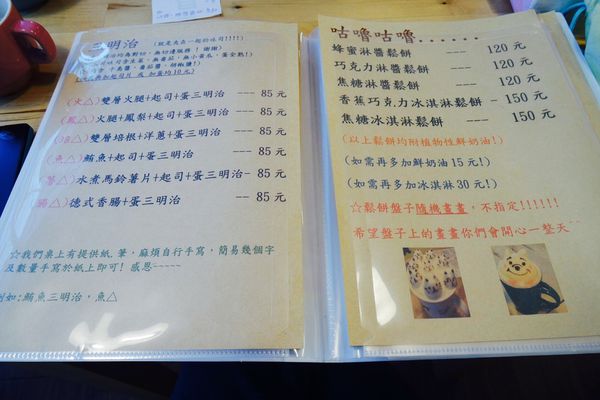 三明治 (就是夾在一起的吐司!!!!)
(火△) 雙層火腿+起司+蛋三明治 --- 85 元
(鳳△) 火腿+鳳梨+起司+蛋三明治 --- 85 元
(培△) 雙層培根+洋蔥+蛋三明治 --- 85 元
(魚△) 鮪魚+起司+蛋三明治 --- 85 元
(薯△) 水煮馬鈴薯片+起司+蛋三明治- 85 元
(腸△) 德式香腸+蛋三明治 -- 85 元
☆我們桌上有提供紙.筆,麻煩自行手寫,簡易幾個字
及數量手寫於紙上即可! 感恩~~~~~
例如:鮪魚三明治,魚△
咕嚕咕嚕......
蜂蜜淋醬鬆餅 --- 120 元
巧克力淋醬鬆餅 --- 120 元
焦糖淋醬鬆餅 --- 120 元
香蕉巧克力冰淇淋鬆餅 - 150 元
焦糖冰淇淋鬆餅 --- 150 元
(以上鬆餅均附植物性鮮奶油!)
(如需再多加鮮奶油 15 元!)
(如需再多加冰淇淋 30 元!)
☆鬆餅盤子隨機畫畫,不指定!!!!!!
希望盤子上的畫畫你們會開心一整天^^